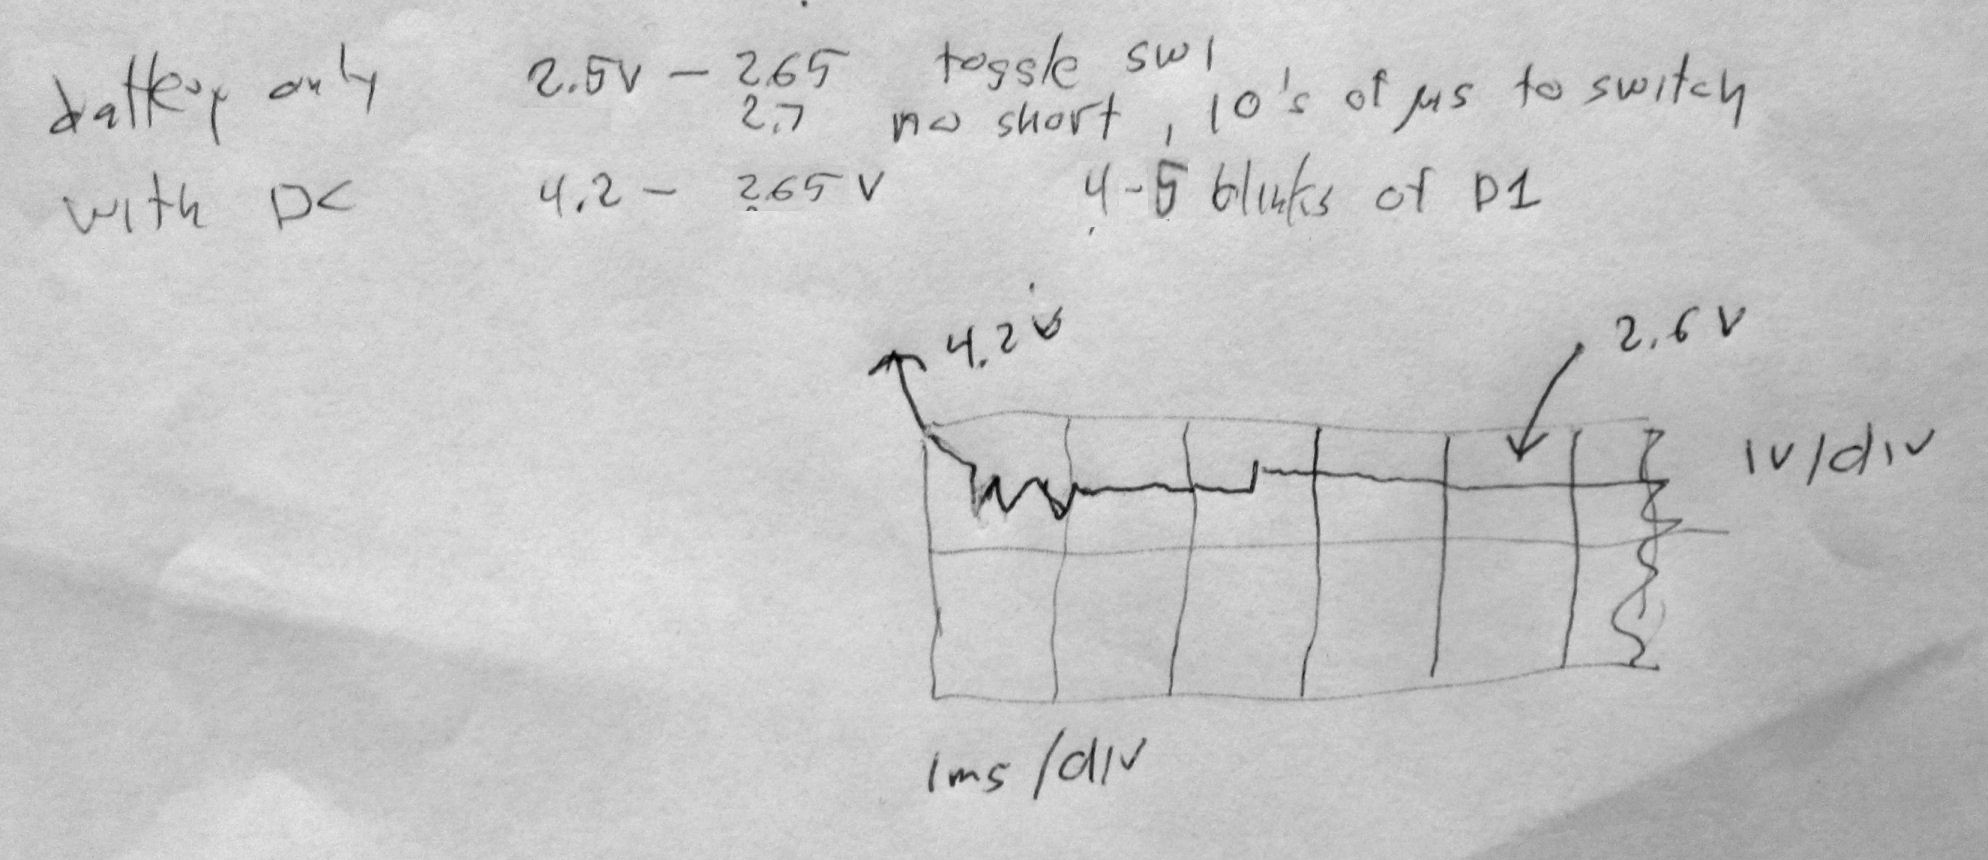 battery only 2.5V – 2.65 toggle SW1
2.7 no short, 10's of µs to switch
with DC 4.2 – 2.65 V 4-5 blinks of D1
4.2 V
2.6 V
1V/div
1ms/div